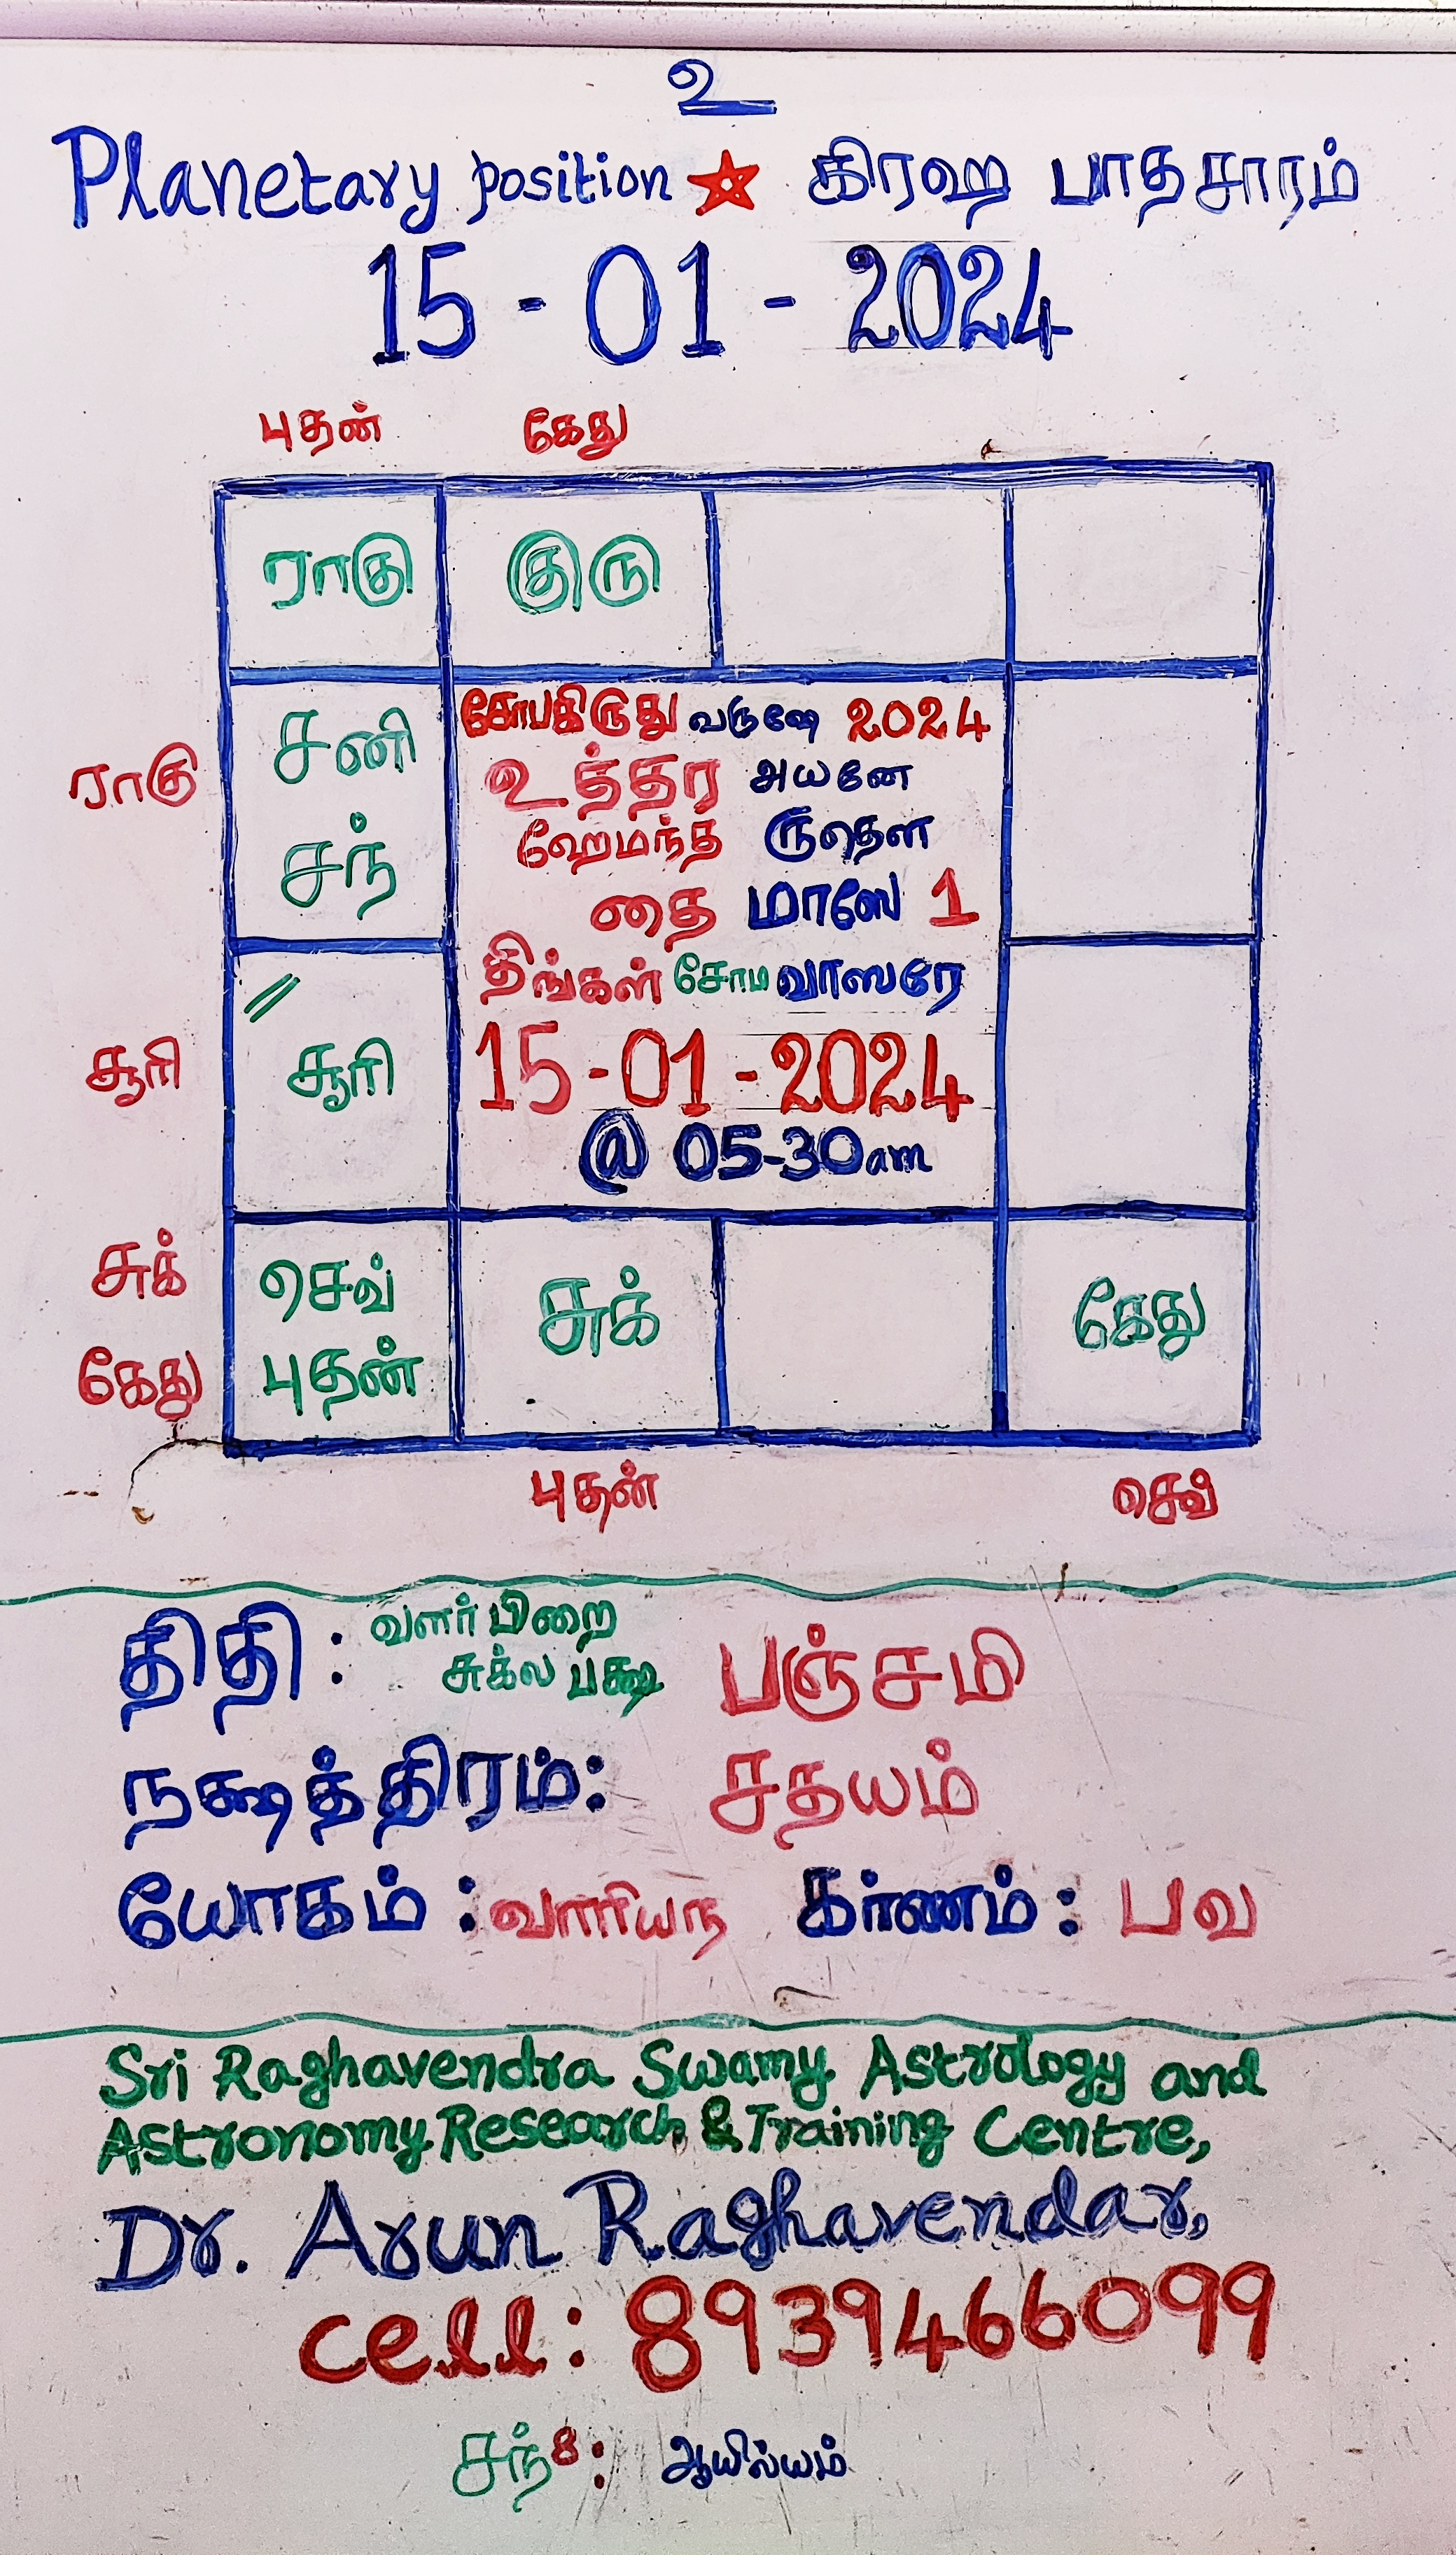 உ
Planetary position ★ கிரஹ பாதசாரம்
15 - 01 - 2024
புதன் கேது
ராகு குரு
ராகு
சனி
சந்
சோபகிருது வருஷே 2024
உத்தர அயனே
ஹேமந்த ருதௌ
தை மாஸே 1
திங்கள் சோம வாஸரே
15-01-2024
@ 05-30am
சூரி சூரி
சுக்
கேது
செவ்
புதன்
சுக் கேது
புதன் செவ்
திதி : வளர் பிறை
சுக்ல பக்ஷ பஞ்சமி
நக்ஷத்திரம்: சதயம்
யோகம் : வாரியந கர்ணம்: பவ
Sri Raghavendra Swamy Astrology and
Astronomy Research & Training Centre,
Dr. Arun Raghavendar,
cell: 8939466099
சந் 8: ஆயில்யம்